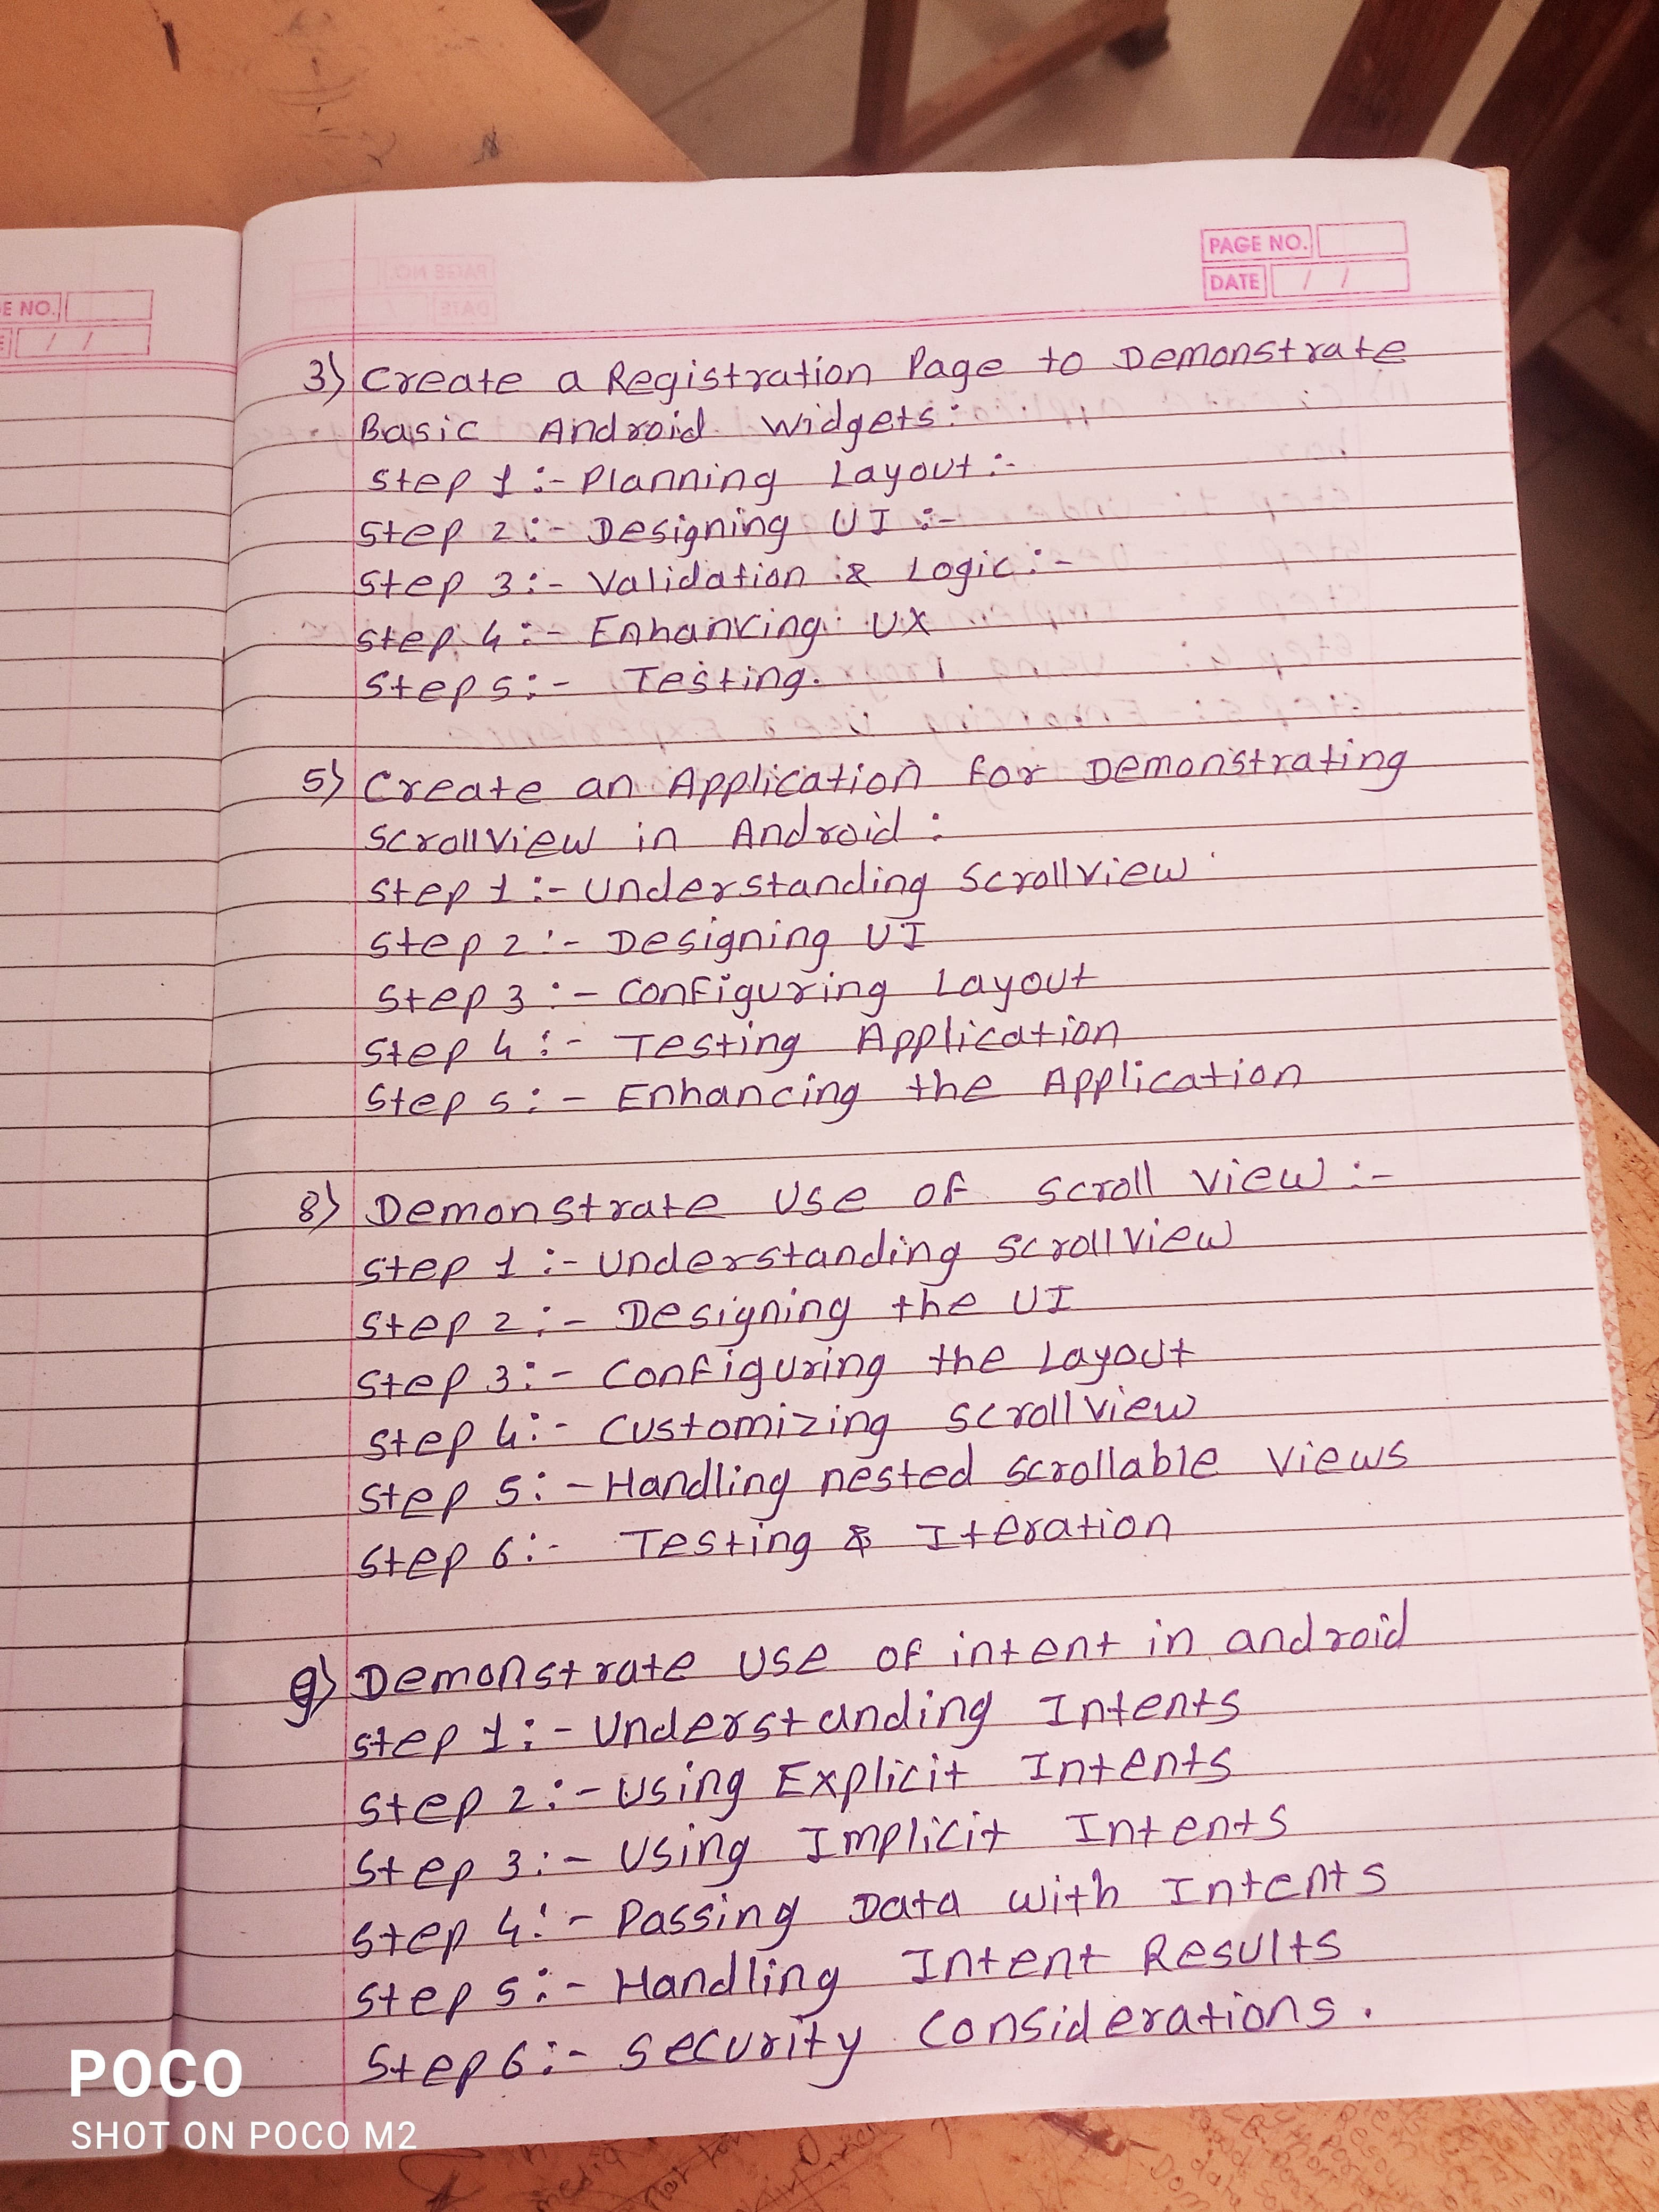 E NO.
/ /
PAGE NO.
DATE / /
3) Create a Registration Page to Demonstrate
Basic Android Widgets:
Step 1:- Planning Layout:-
Step 2:- Designing UI :-
Step 3:- Validation & Logic:-
Step 4:- Enhancing UX
Step 5:- Testing.
5) Create an Application for Demonstrating
ScrollView in Android :
Step 1:- Understanding ScrollView
Step 2:- Designing UI
Step 3:- Configuring Layout
Step 4:- Testing Application
Step 5:- Enhancing the Application
8) Demonstrate Use of Scroll View:-
Step 1:- Understanding ScrollView
Step 2:- Designing the UI
Step 3:- Configuring the Layout
Step 4:- Customizing ScrollView
Step 5:- Handling nested scrollable Views
Step 6:- Testing & Iteration
9) Demonstrate Use of intent in android
Step 1:- Understanding Intents
Step 2:- Using Explicit Intents
Step 3:- Using Implicit Intents
Step 4:- Passing Data with Intents
Step 5:- Handling Intent Results
Step 6:- Security Considerations.
POCO
SHOT ON POCO M2